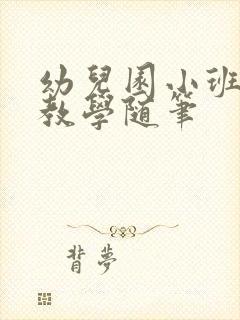 幼兒園小班
教學随筆
背夢